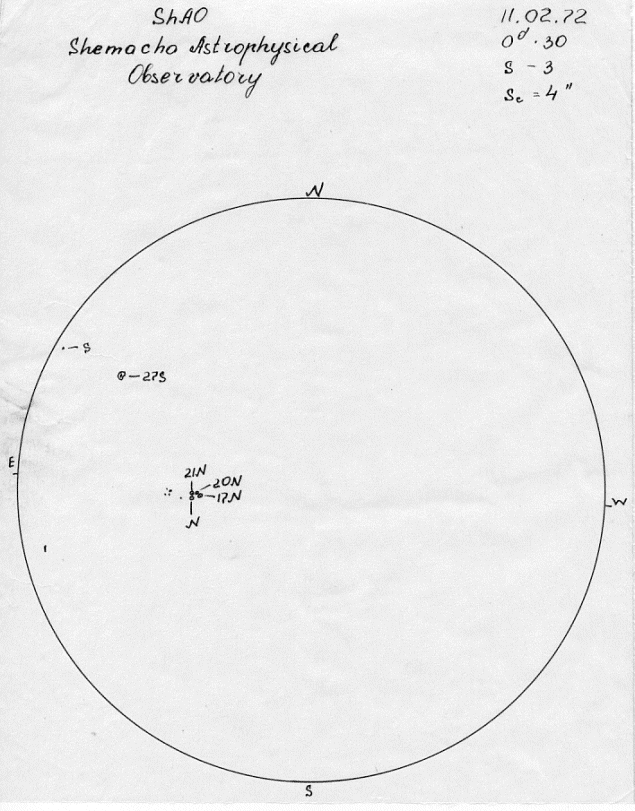 ShAO
Shemacho Astrophysical
Observatory
11.02.72
0ᵈ.30
S - 3
Sc = 4"
N
- S
- 27S
E
21N
- 20N
- 17N
N
W
S